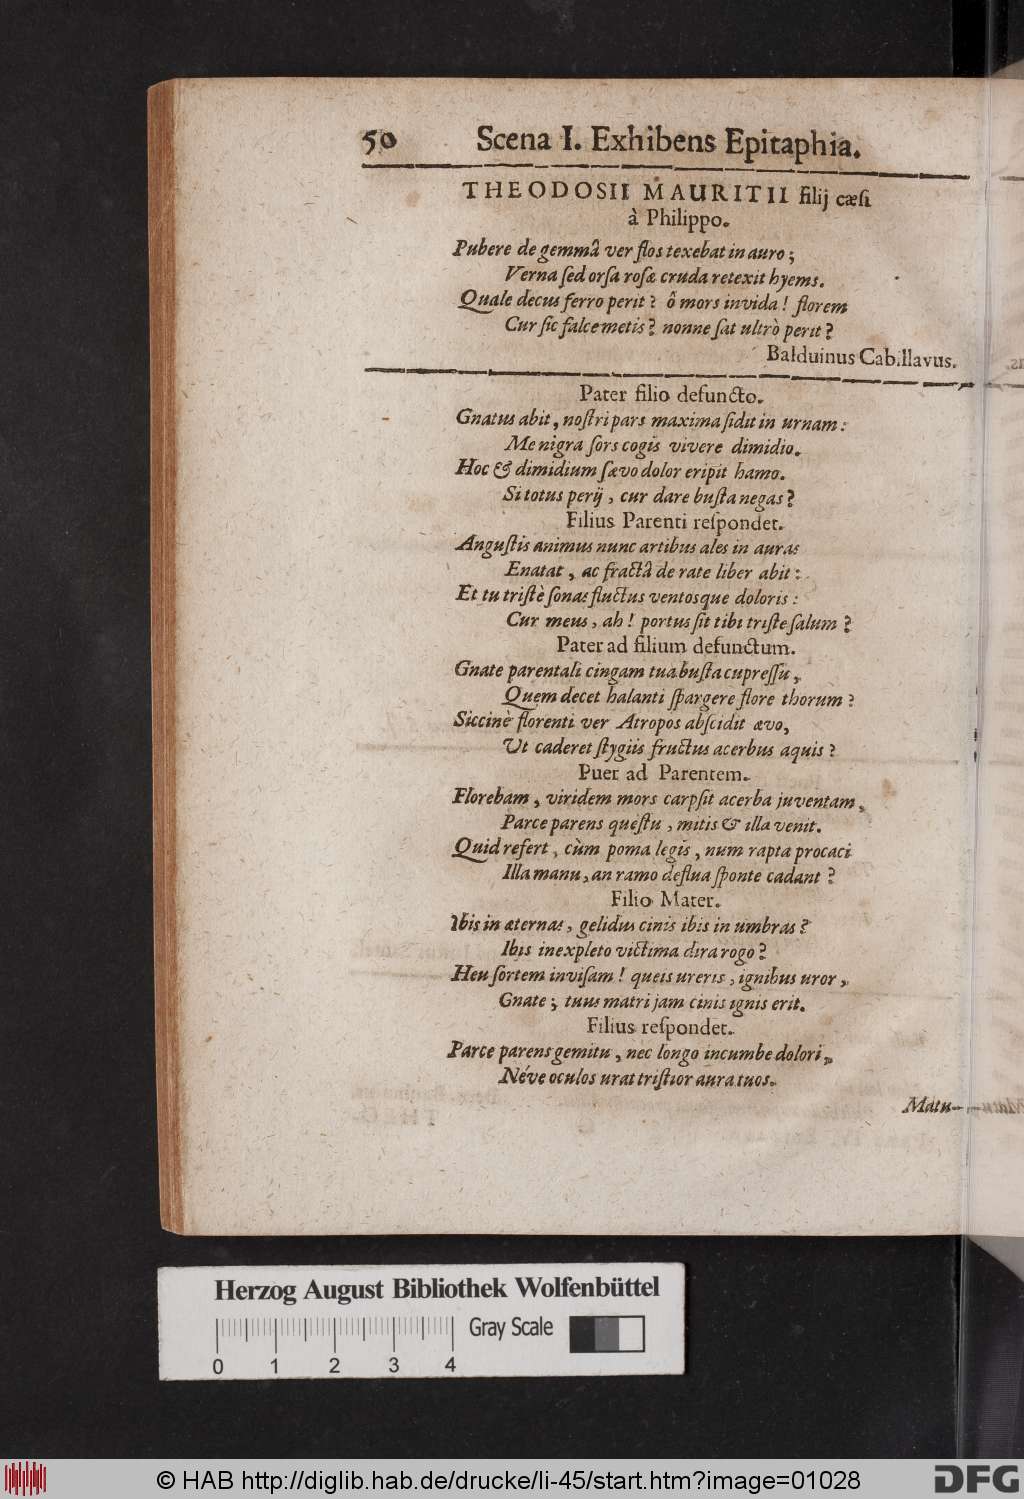 50 Scena I. Exhibens Epitaphia.
THEODOSII MAURITII filij cæsi
à Philippo.
Pubere de gemmâ ver flos texebat in auro;
Verna sed orsa rosæ cruda retexit hyems.
Quale decus ferro perit? ô mors invida! florem
Cur sic falce metis? nonne sat ultrò perit?
Balduinus Cabillavus.
Pater filio defuncto.
Gnatus abit, nostri pars maxima sidit in urnam:
Me nigra sors cogis vivere dimidio.
Hoc & dimidium sævo dolor eripit hamo.
Si totus perij, cur dare busta negas?
Filius Parenti respondet.
Angustis animus nunc artibus ales in auras
Enatat, ac fractâ de rate liber abit:
Et tu tristè sonas fluctus ventosque doloris:
Cur meus, ah! portus sit tibi triste salum?
Pater ad filium defunctum.
Gnate parentali cingam tua busta cupressu,
Quem decet halanti spargere flore thorum?
Siccinè florenti ver Atropos abscidit ævo,
Ut caderet stygiis fructus acerbus aquis?
Puer ad Parentem.
Florebam, viridem mors carpsit acerba juventam,
Parce parens questu, mitis & illa venit.
Quid refert, cùm poma legis, num rapta procaci
Illa manu, an ramo deflua sponte cadant?
Filio Mater.
Ibis in æternas, gelidus cinis ibis in umbras?
Ibis inexpleto victima dira rogo?
Heu sortem invisam! queis ureris, ignibus uror,
Gnate; tuus matri jam cinis ignis erit.
Filius respondet.
Parce parens gemitu, nec longo incumbe dolori,
Néve oculos urat tristior aura tuos.
Matu-
Herzog August Bibliothek Wolfenbüttel
Gray Scale
0 1 2 3 4
© HAB http://diglib.hab.de/drucke/li-45/start.htm?image=01028
DFG